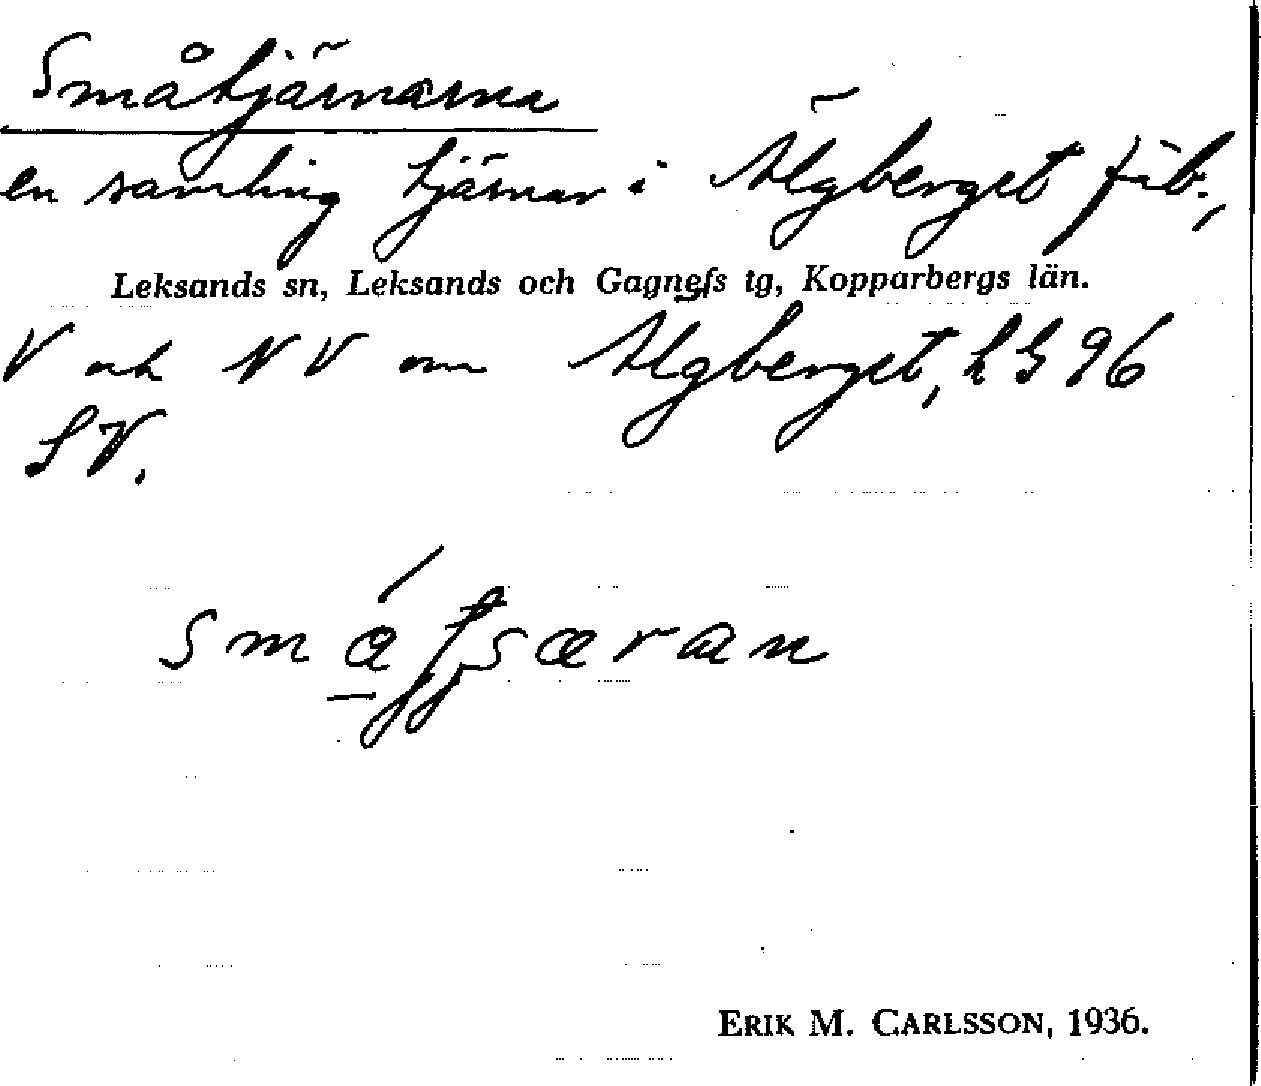 Småtjärnarna
en samling tjärnar i Älgberget fäb.,
Leksands sn, Leksands och Gagnefs tg, Kopparbergs län.
V och NV om Älgberget, LG 96
SV.
ERIK M. CARLSSON, 1936.